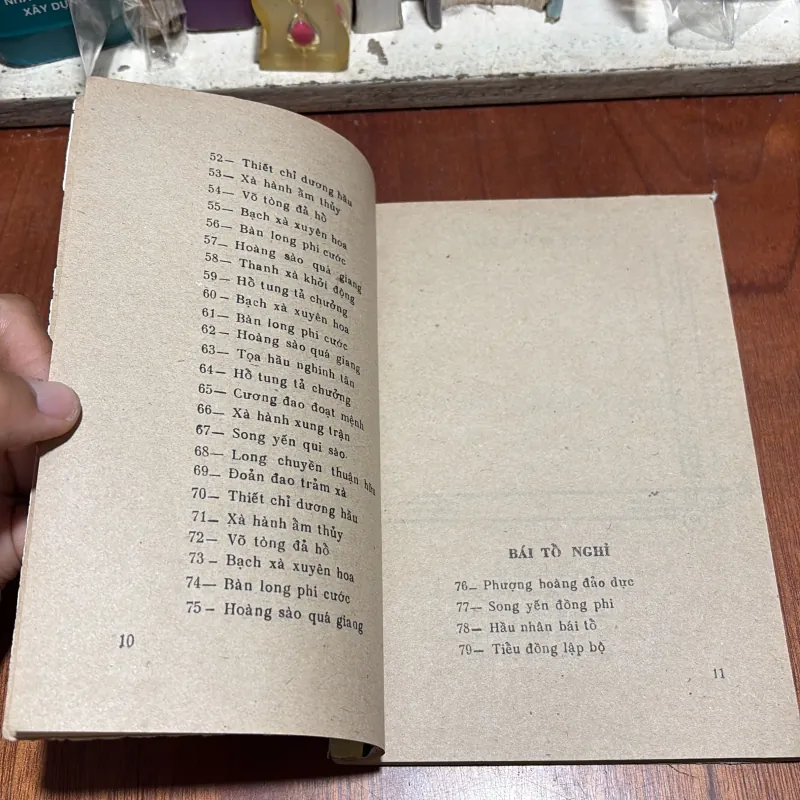 XÂY DỰ
52— Thiết chỉ dương hầu
53— Xà hành ầm thủy
54— Võ tòng đả hồ
55— Bạch xà xuyên hoa
56— Bàn long phi cước
57— Hoàng sào quá giang
58— Thanh xà khởi động
59— Hồ tung tả chưởng
60— Bạch xà xuyên hoa
61— Bàn long phi cước
62— Hoàng sào quá giang
63— Tọa hầu nghinh tân
64— Hồ tung tả chưởng
65— Cương đao đoạt mệnh
66— Xà hành xung trận
67— Song yến qui sào.
68— Long chuyền thuận hầu
69— Đoản đao trảm xà
70— Thiết chỉ dương hầu
71— Xà hành ầm thủy
72— Võ tòng đả hồ
73— Bạch xà xuyên hoa
74— Bàn long phi cước
75— Hoàng sào quá giang
10
BÁI TỒ NGHI
76— Phượng hoàng đảo dực
77— Song yến đồng phi
78— Hầu nhân bái tồ
79— Tiều đồng lập bộ
11